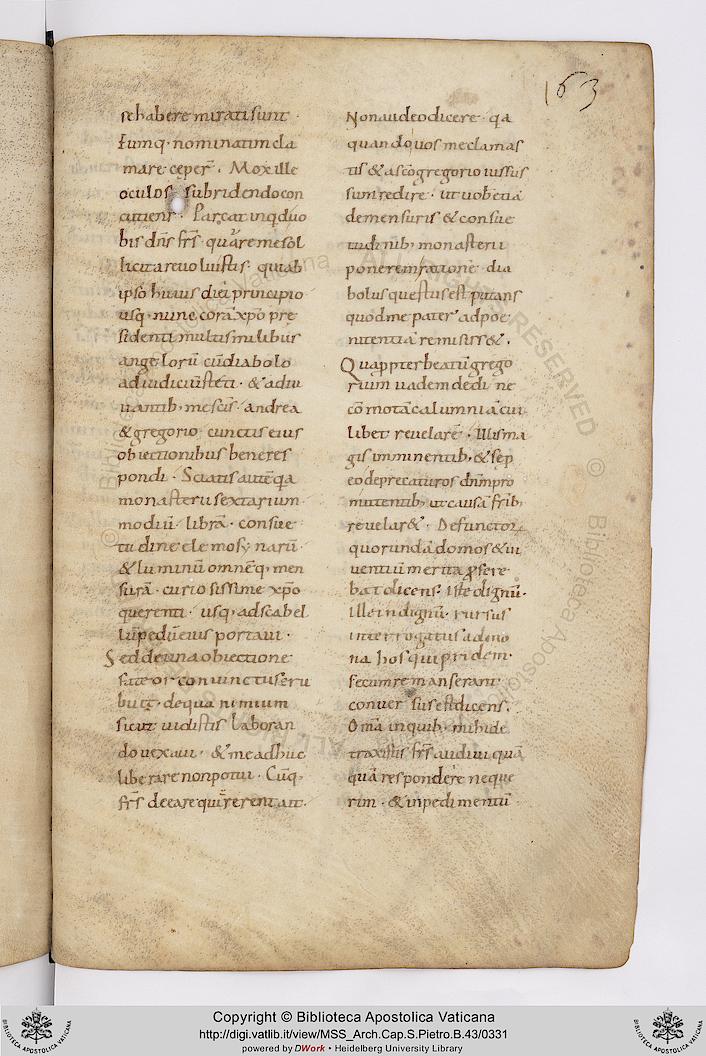 163
sehabere miratisunt ·
Eumq· nominatim cla
mare ceper̄ · Moxille
oculos subridendo con
cutiens · Parcat inqd uo
bis dn̄s fr̄s quare me sol
licitare uoluistis · quiab
ipso huius diei principio
usq· nunc corā xp̄o pre
sidenti multis milibus
angelorū cū diabolo
adiudiciū steti · & adiu
uantib· me sc̄is andrea
& gregorio cunctis eius
obiectionibus bene res
pondi · Sciatis autē qa
monasterii sextarium
modiū · librā · consue
tudine elemosynarū
& luminū omnēq· men
surā · curiosissime xp̄o
querenti · usq· ad scabel
lū pedū eius portaui ·
Sed de una obiectione
fateor conuinctus eru
bui · de qua nimium
sicut uidistis laboran
do uexaui · & me adhuc
liberare non potui · Cūq·
fr̄s de ea requirerent ait ·
Non audeo dicere · qa
quando uos me clamas
tis & a sc̄o gregorio iussus
sum redire · ut uob etiā
de mensuris & consue
tudinib· monasterii
ponerem rationē · dia
bolus questus est putans
quod me pater ad poe
nitentiā remisiss& ·
Qua ppter beatū grego
rium uadem dedi ne
cōmotā calumniā cui
libet reuelarē · Illis ma
gis imminentib· & sep
eo deprecaturos dn̄m pro
mittentib· ut causā frib·
reuelar& · Defunctor
quorundā domos & iu
uentiū merita p̄fere
bat dicens · iste dignū ·
ille indignū · rursus
interrogatus ad eno
na hos qui pridem
secum remanserant
conuersus est dicens ·
Om̄a in quib· mihi de
traxistis fr̄s audiui quā
quā respondere neque
rim · & inpedimentū
Copyright © Biblioteca Apostolica Vaticana
http://digi.vatlib.it/view/MSS_Arch.Cap.S.Pietro.B.43/0331
powered by DWork • Heidelberg University Library